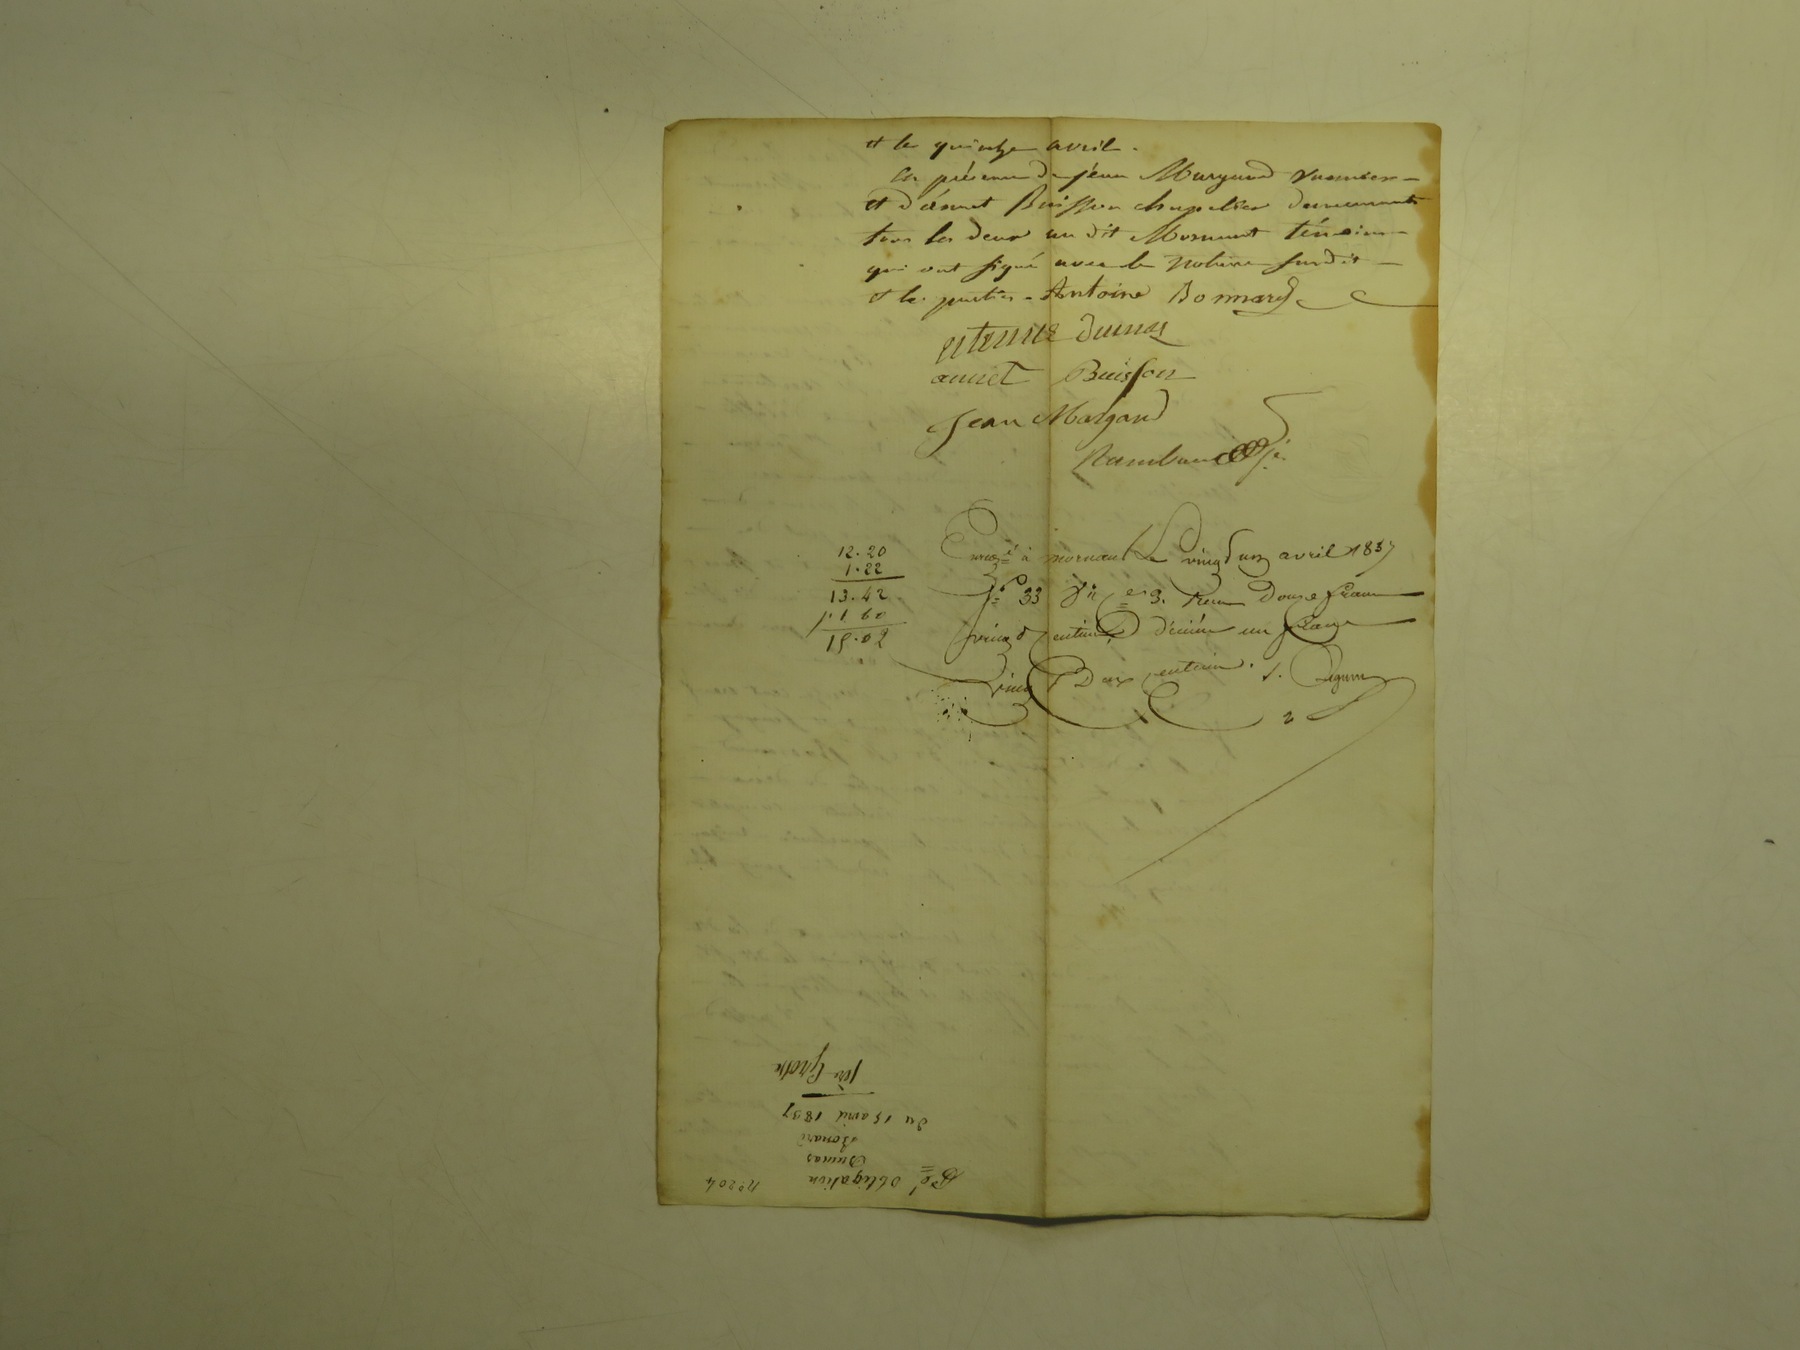 et le quinze avril.
En présence de jean Margand vannier
et d'annet Buisson chapelier demeurants
tous les deux au dit Mornant témoins
qui ont signé avec le notaire susdit
et les parties. Antoine Bonnard
etienne dumas
annet Buisson
Jean Margand
12.20
1.22
13.42
1 60
15.02
Enregé à mornant Le vingt un avril 1837
fo 33 Ro Ce 3. Reçu Douze francs
vingt centimes décime un franc
vingt Deux centimes.
2
No 204
Obligation
Dumas
Bonard
du 15 avril 1837
1ère Grosse